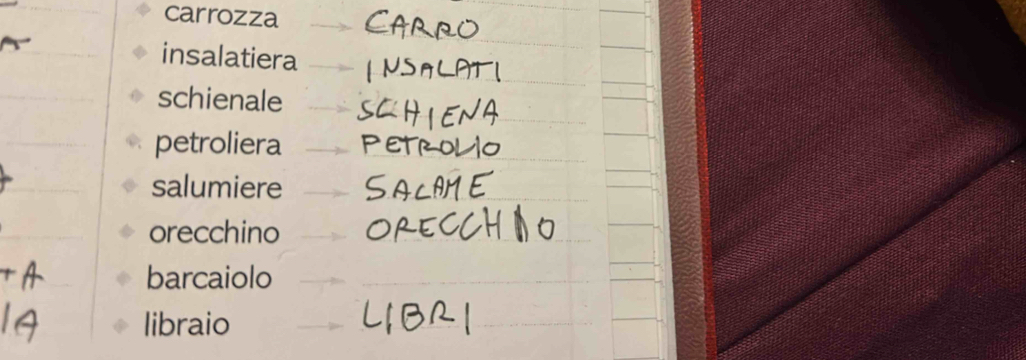 carrozza → CARRO
insalatiera → INSALATI
schienale → SCHIENA
petroliera → PETROLIO
salumiere → SALAME
orecchino → ORECCHIO
TA barcaiolo →
IA libraio → LIBRI